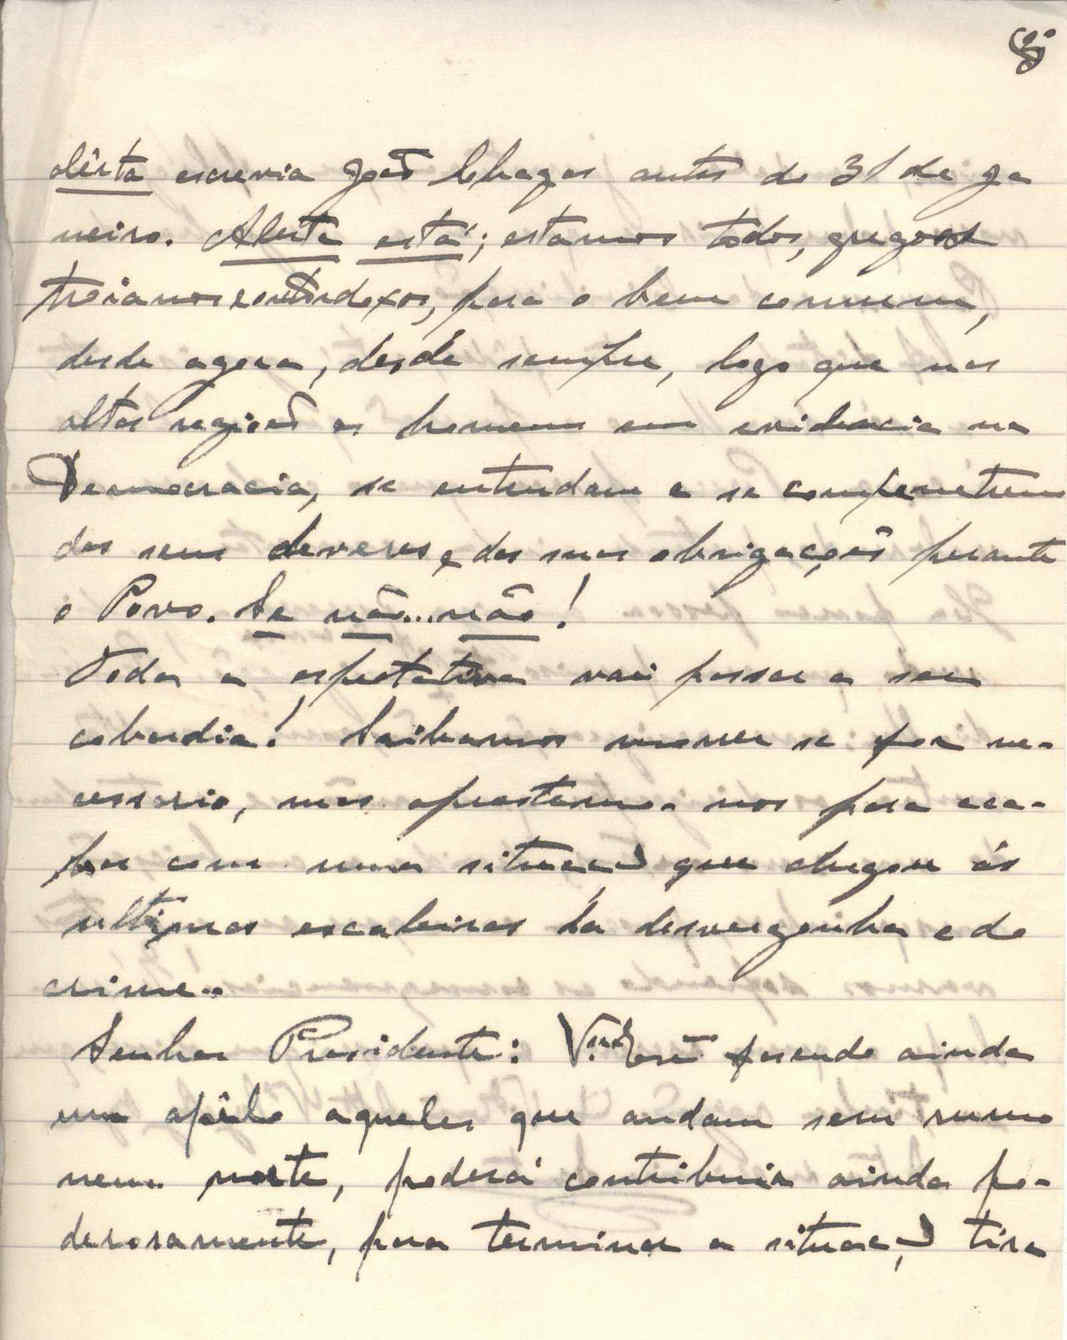 alérta escrevia João Chagas antes do 31 de Ja
neiro. Alerta está; estamos todos, gregos
troianos e ortodoxos, para o bem comum,
desde agora, desde sempre, logo que nas
altas regiões os homens em evidencia na
Democracia, se entendam e se compenetrem
dos seus deveres e das suas obrigações perante
o Povo. Se não... não!
Toda a espectativa vai passar a ser
cobardia! Saibamos morrer se for ne-
cessario, mas aprestemo-nos para aca-
bar com uma situação que chegou ás
ultimas escaleiras da desvergonha e do
crime..
Senhor Presidente: V.ª Exª fazendo ainda
um apêlo aqueles que andam sem rumo
nem norte, poderá contribuir ainda po-
derosamente, para terminar a situação tira